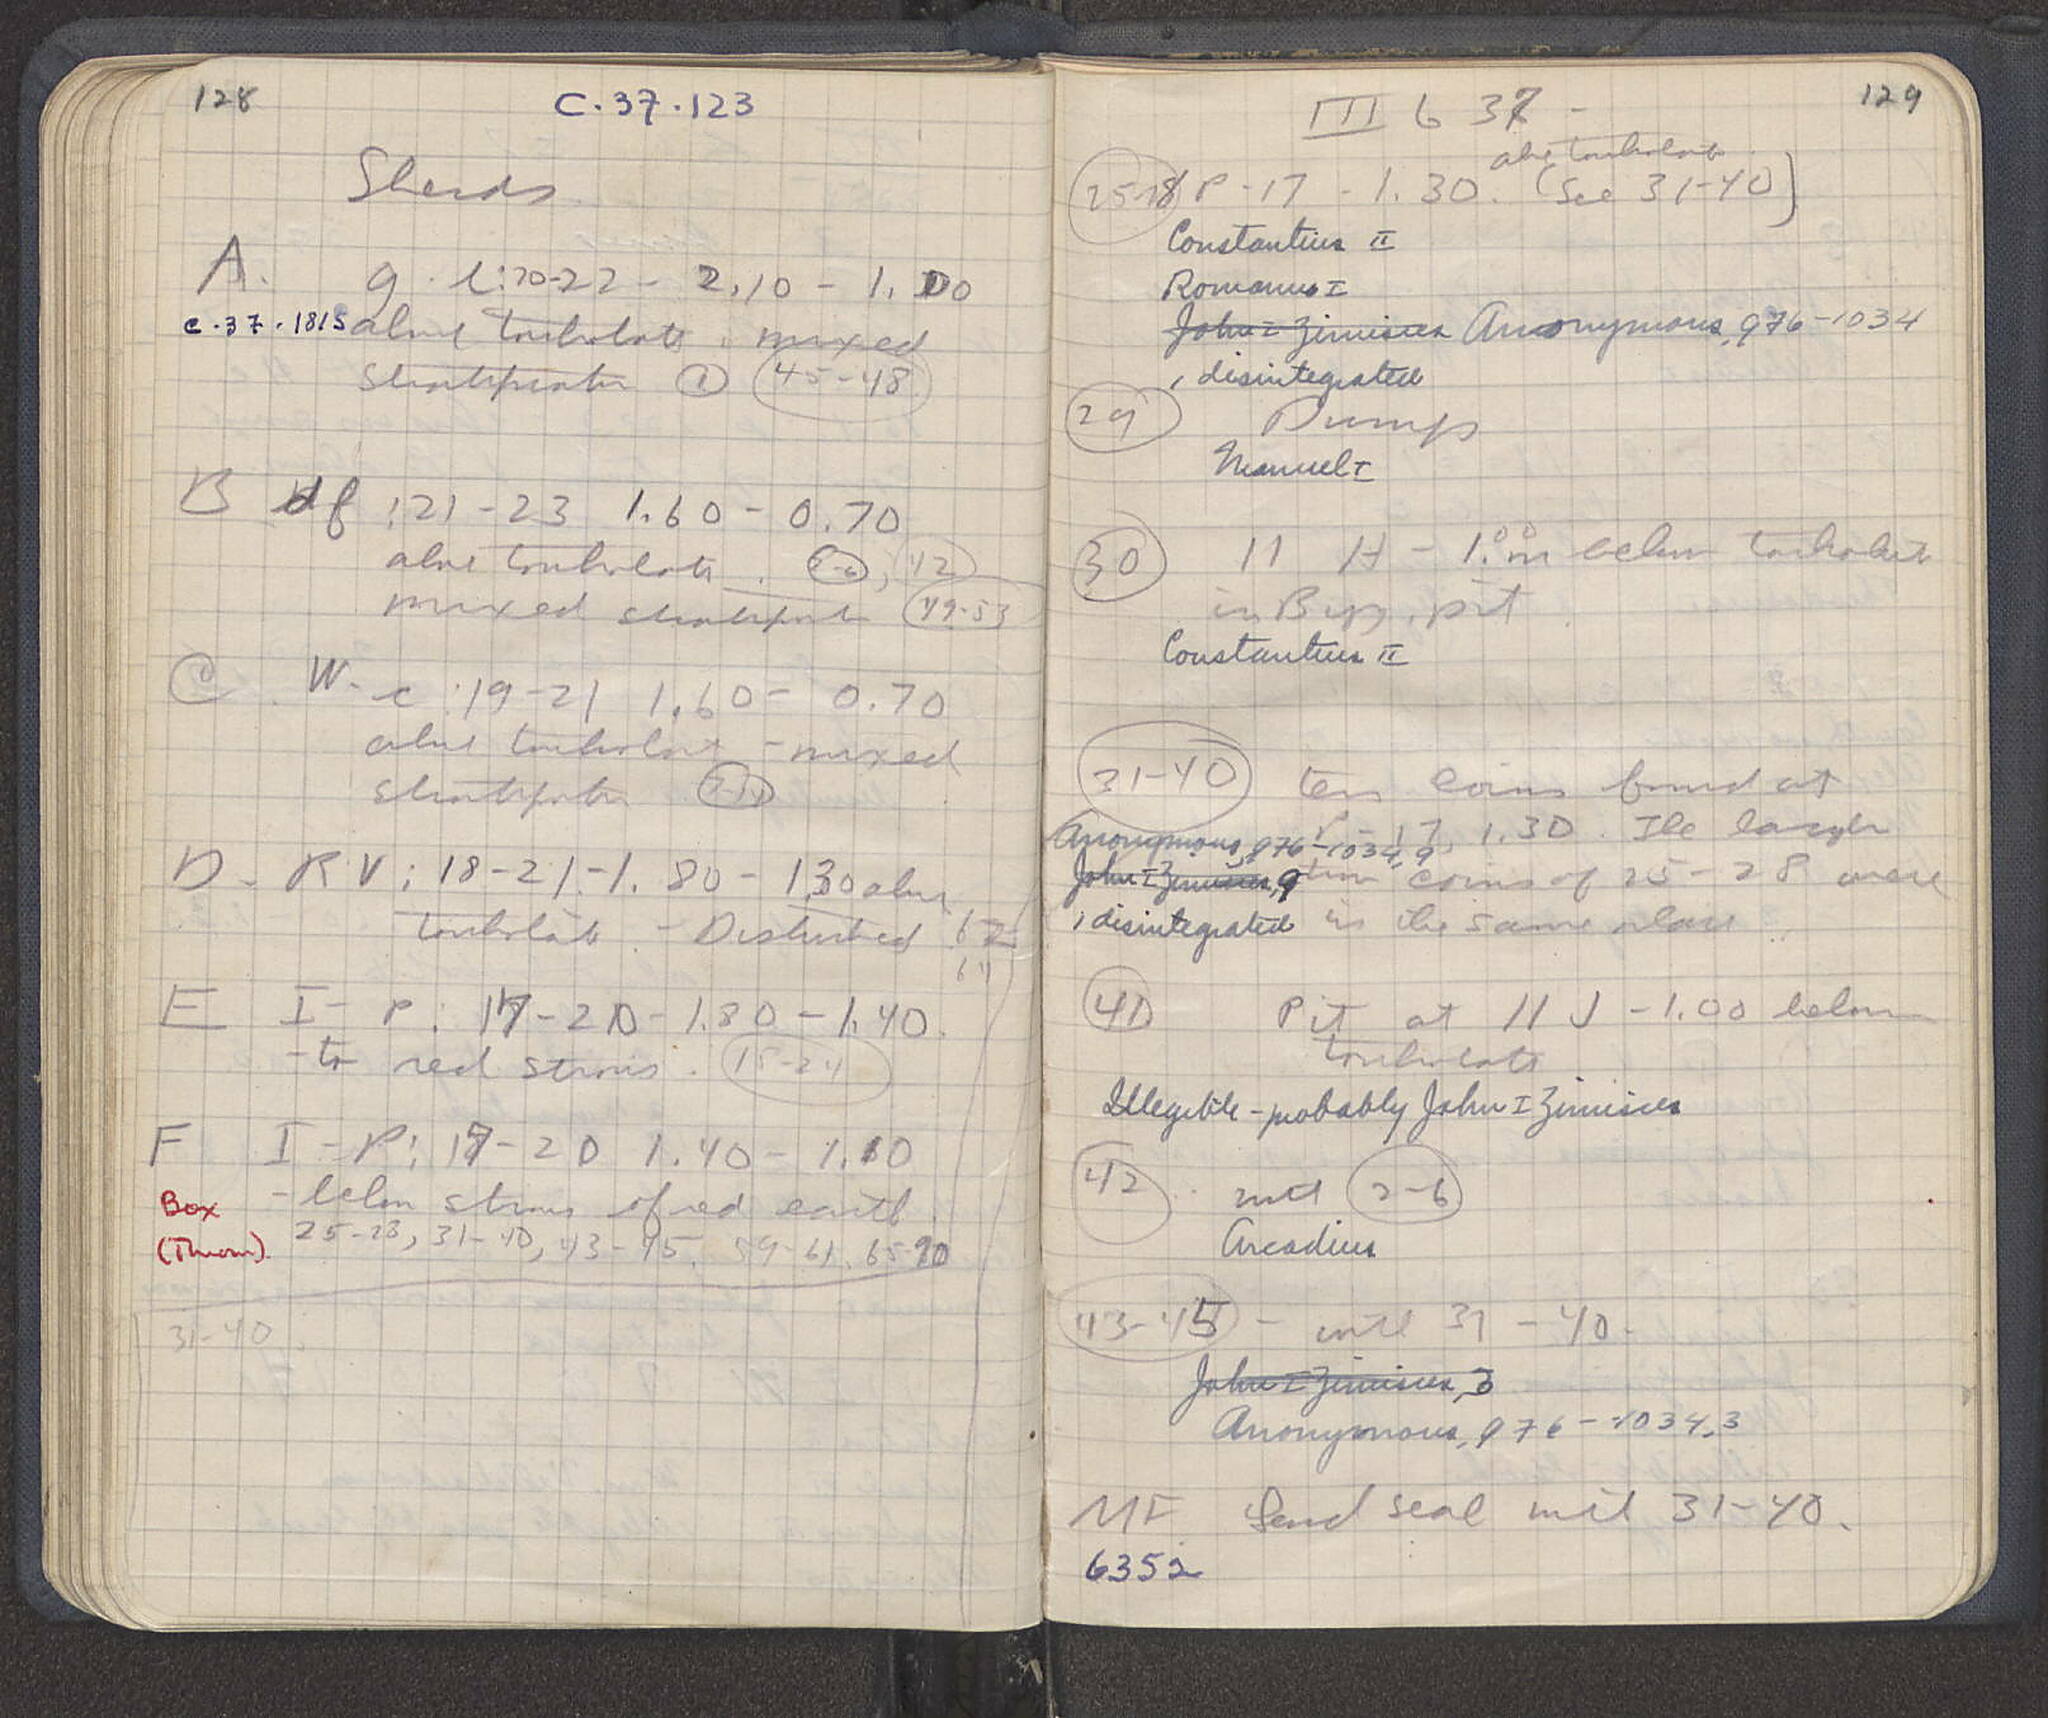 128
C.37.123
Sherds
A. g-l:20-22 - 2.10 - 1.00
C.37.1815 above toubolato. mixed
Stratification (1) (45-48)
B df :21-23 1.60-0.70
above toubolato. (2-6), (42)
mixed stratification (49-53)
C. W-c :19-21 1.60-0.70
above toubolato - mixed
Stratification
D- R-V: 18-21-1.80-1.30 above
toubolato. - Disturbed 62-
64
E I-P: 17-20-1.80-1.40.
-to red stosis. (15-24)
F I-P: 17-20 1.40-1.10
Box - below stosis of red earth.
(Thrown). 25-28, 31-40, 43-45. 59-61. 65-70
31-40.
129
III 6 37 -
above toubolato.
(25-28) P-17 - 1.30. (See 31-40)
Constantius II
Romanus I
John I Zimisces Anonymous, 976-1034
1 disintegrated
(29) Dumps
Manuel I
(30) 11 H - 1.00m below toubolato
in Byz. pit.
Constantius II
(31-40) ten coins found at
P-17, 1.30. The larger
Anonymous, 976-1034, 9
John I Zimisces, 9 coins of 25-28 were
1 disintegrated in the same place.
(41) Pit at 11 J - 1.00 below
toubolato
Illegible - probably John I Zimisces
(42) with (2-6)
Arcadius
(43-45) - with 31-40.
John I Zimisces, 3
Anonymous, 976-1034, 3
MF Lead seal with 31-40.
6352